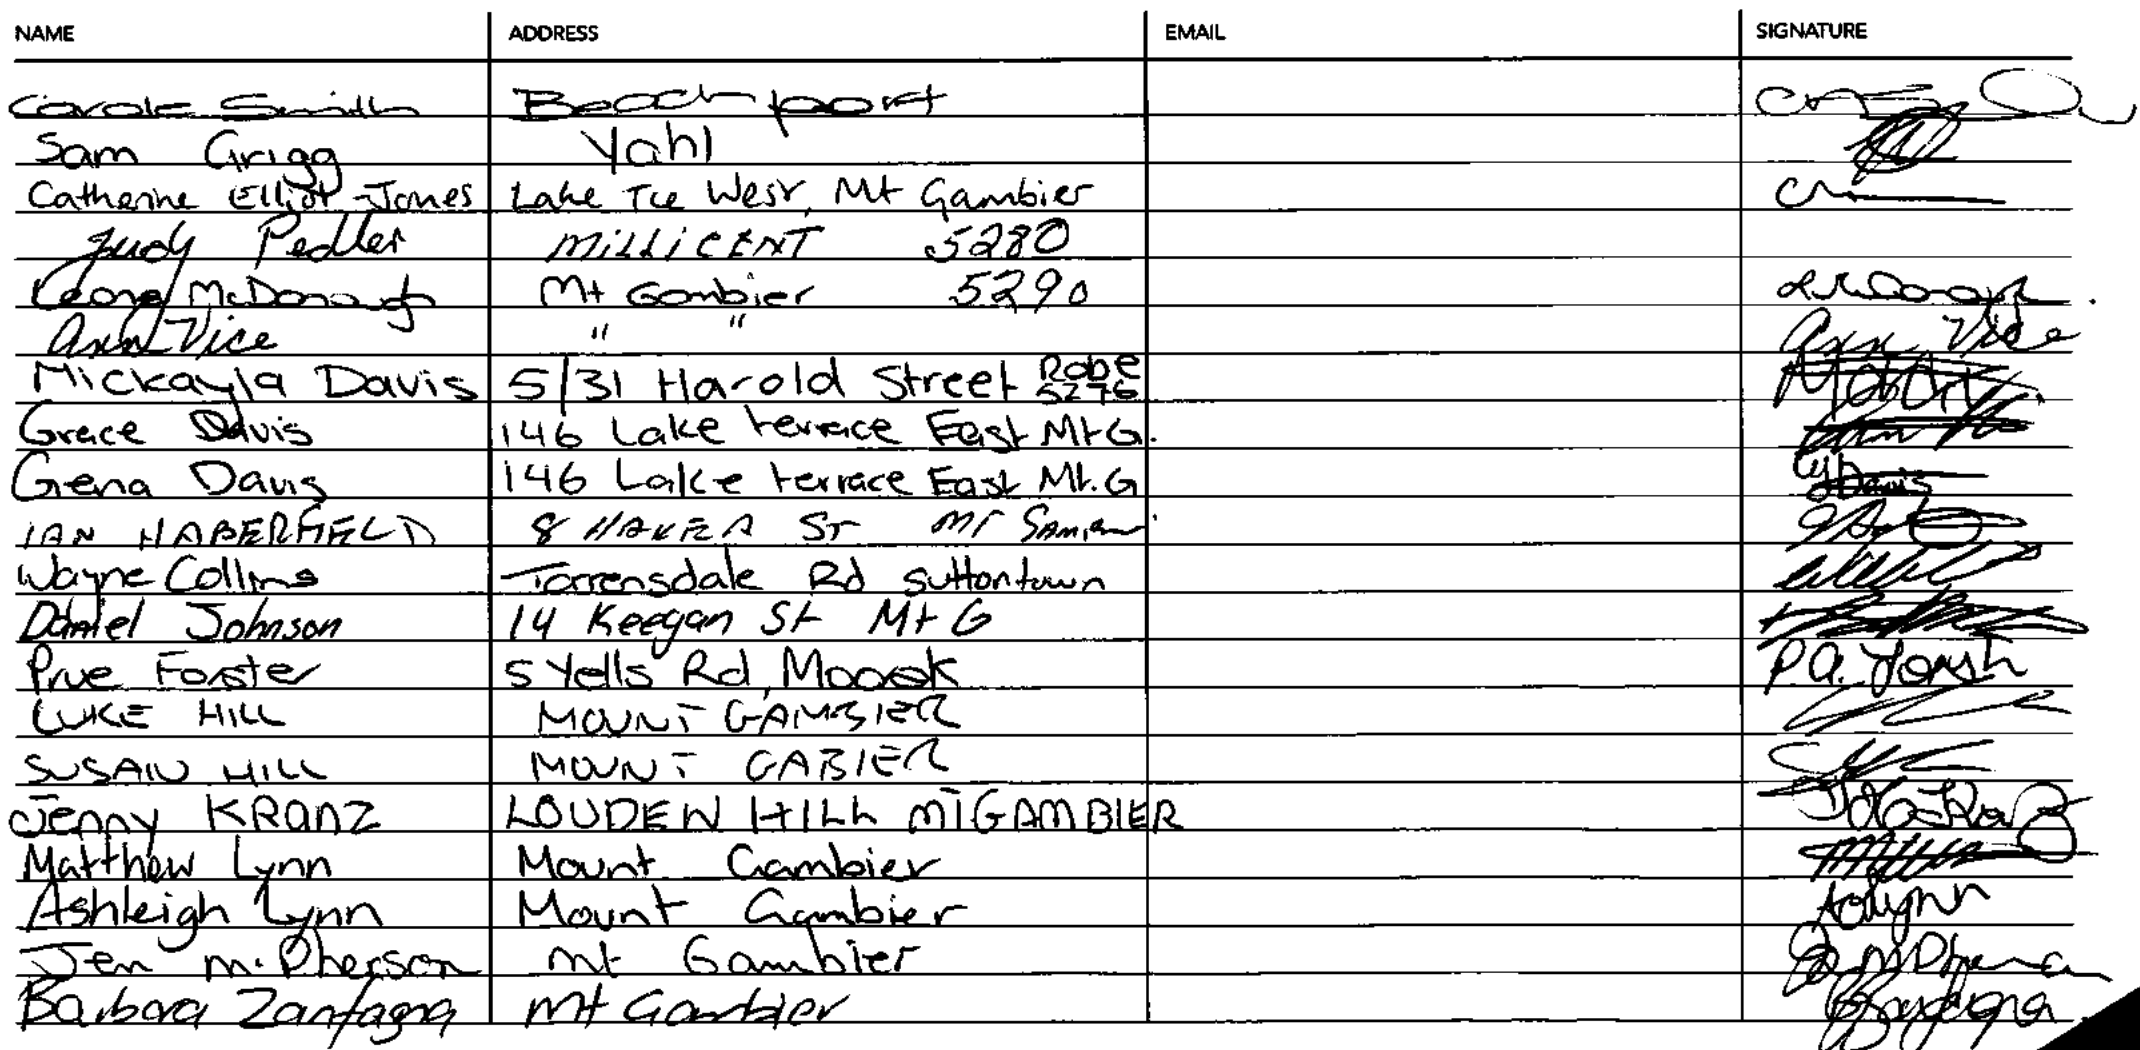 NAME ADDRESS EMAIL SIGNATURE
Carole Smith Beachport
Sam Grigg Yahl
Catherine Elliot-Jones Lake Tce West, Mt Gambier
Judy Pedler MILLICENT 5280
McDonough Mt Gambier 5290
Ann Vice " " Ann Vice
Mickayla Davis 5/31 Harold Street Robe 5276
Grace Davis 146 Lake terrace East Mt G.
Gena Davis 146 Lake terrace East Mt. G
IAN HABERFIELD 8 St Mt
Wayne Collins Torrensdale Rd Suttontown
Daniel Johnson 14 Keegan St Mt G
Prue Forster 5 Yells Rd, Moorak P.A.
LUKE HILL MOUNT GAMBIER
SUSAN HILL MOUNT GABIER
Jenny KRANZ LOUDEN HILL MT GAMBIER
Matthew Lynn Mount Gambier
Ashleigh Lynn Mount Gambier
Jen McPherson Mt Gambier
Barbara Zanfagna Mt Gambier